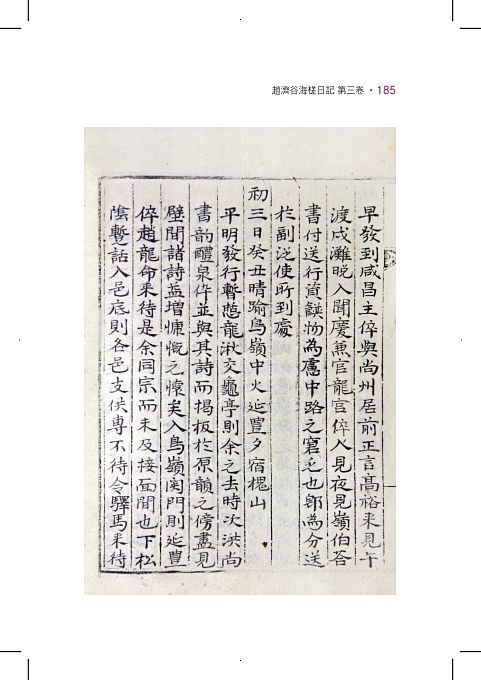 趙濟谷海槎日記 第三卷 · 185
早發到咸昌主倅與尙州居前正言高裕来見午
渡戍灘晩入聞慶兼官龍宮倅人見夜見嶺伯答
書付送行資饌物為慮中路之窘乏也卽為分送
扵副從使所到處
初三日癸丑晴踰鳥嶺中火延豊夕宿槐山
平明發行暫憩龍湫交龜亭則余之去時次洪尙
書韵醴泉倅並與其詩而揭板扵原韻之傍盡見
壁間諸詩益增慷慨之懷矣入鳥嶺関門則延豊
倅趙龍命来待是余同宗而未及接面間也下松
陰暫話入邑底則各邑支供專不待令驛馬来待